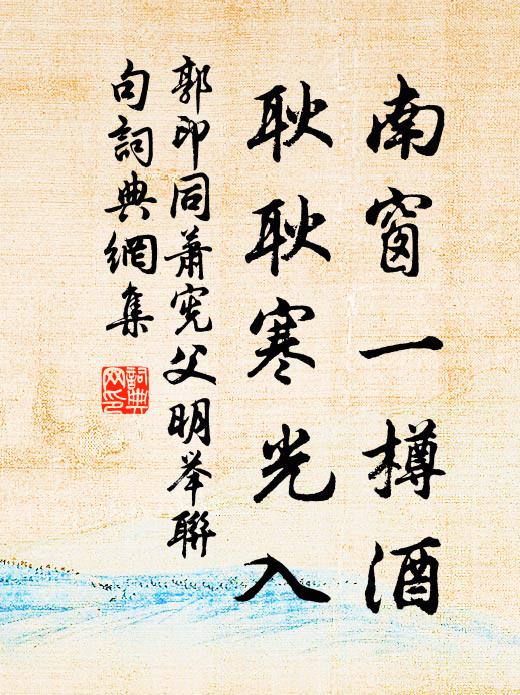 南窗一樽酒
耿耿寒光入
郭印同蕭宪父明举聯
句詞典網集
詞典
网印